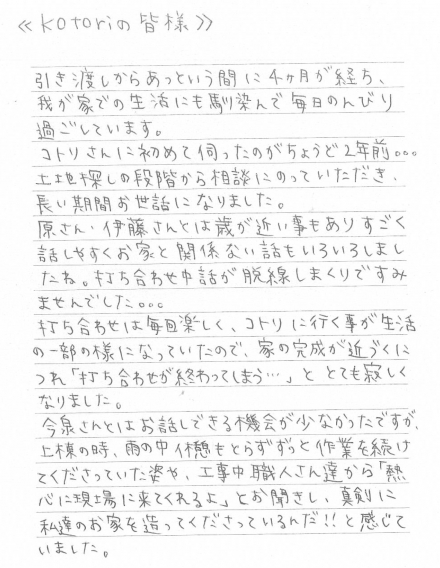 ≪kotoriの皆様≫
引き渡しからあっという間に4ヶ月が経ち、
我が家での生活にも馴染んで毎日のんびり
過ごしています。
コトリさんに初めて伺ったのがちょうど2年前。。。
土地探しの段階から相談にのっていただき、
長い期間お世話になりました。
原さん・伊藤さんとは歳が近い事もありすごく
話しやすくお家と関係ない話もいろいろしまし
たね。打ち合わせ中話が脱線しまくりですみ
ませんでした。。。
打ち合わせは毎回楽しく、コトリに行く事が生活
の一部の様になっていたので、家の完成が近づくに
つれ「打ち合わせが終わってしまう…」と とても寂しく
なりました。
今泉さんとはお話しできる機会が少なかったですが、
上棟の時、雨の中休憩もとらずずっと作業を続け
てくださっていた姿や、工事中職人さん達から「熱
心に現場に来てくれるよ」とお聞きし、真剣に
私達のお家を造ってくださっているんだ!!と感じて
いました。